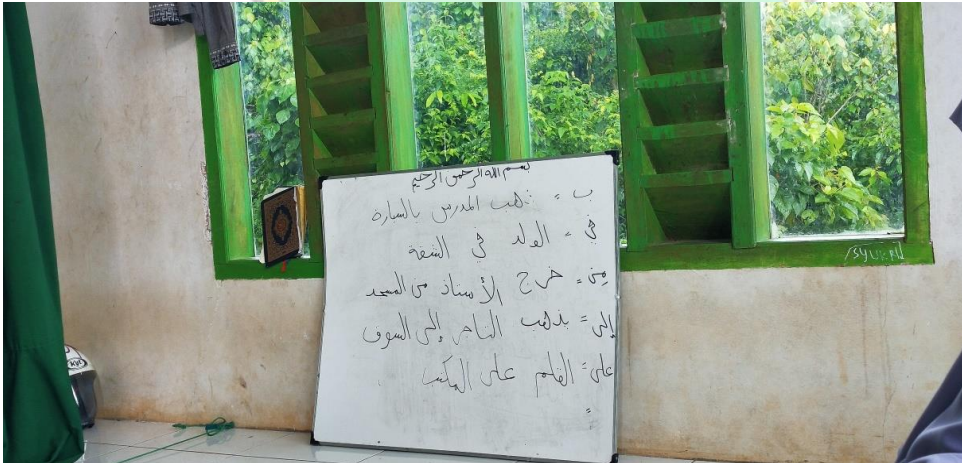 بسم الله الرحمن الرحيم
ب = يذهب المدرس بالسيارة
في = الولد في الشقة
مِن = خرج الأستاذ من المسجد
إلى = يذهب التاجر إلى السوق
على = القلم على المكتب
=
/SYUKRU